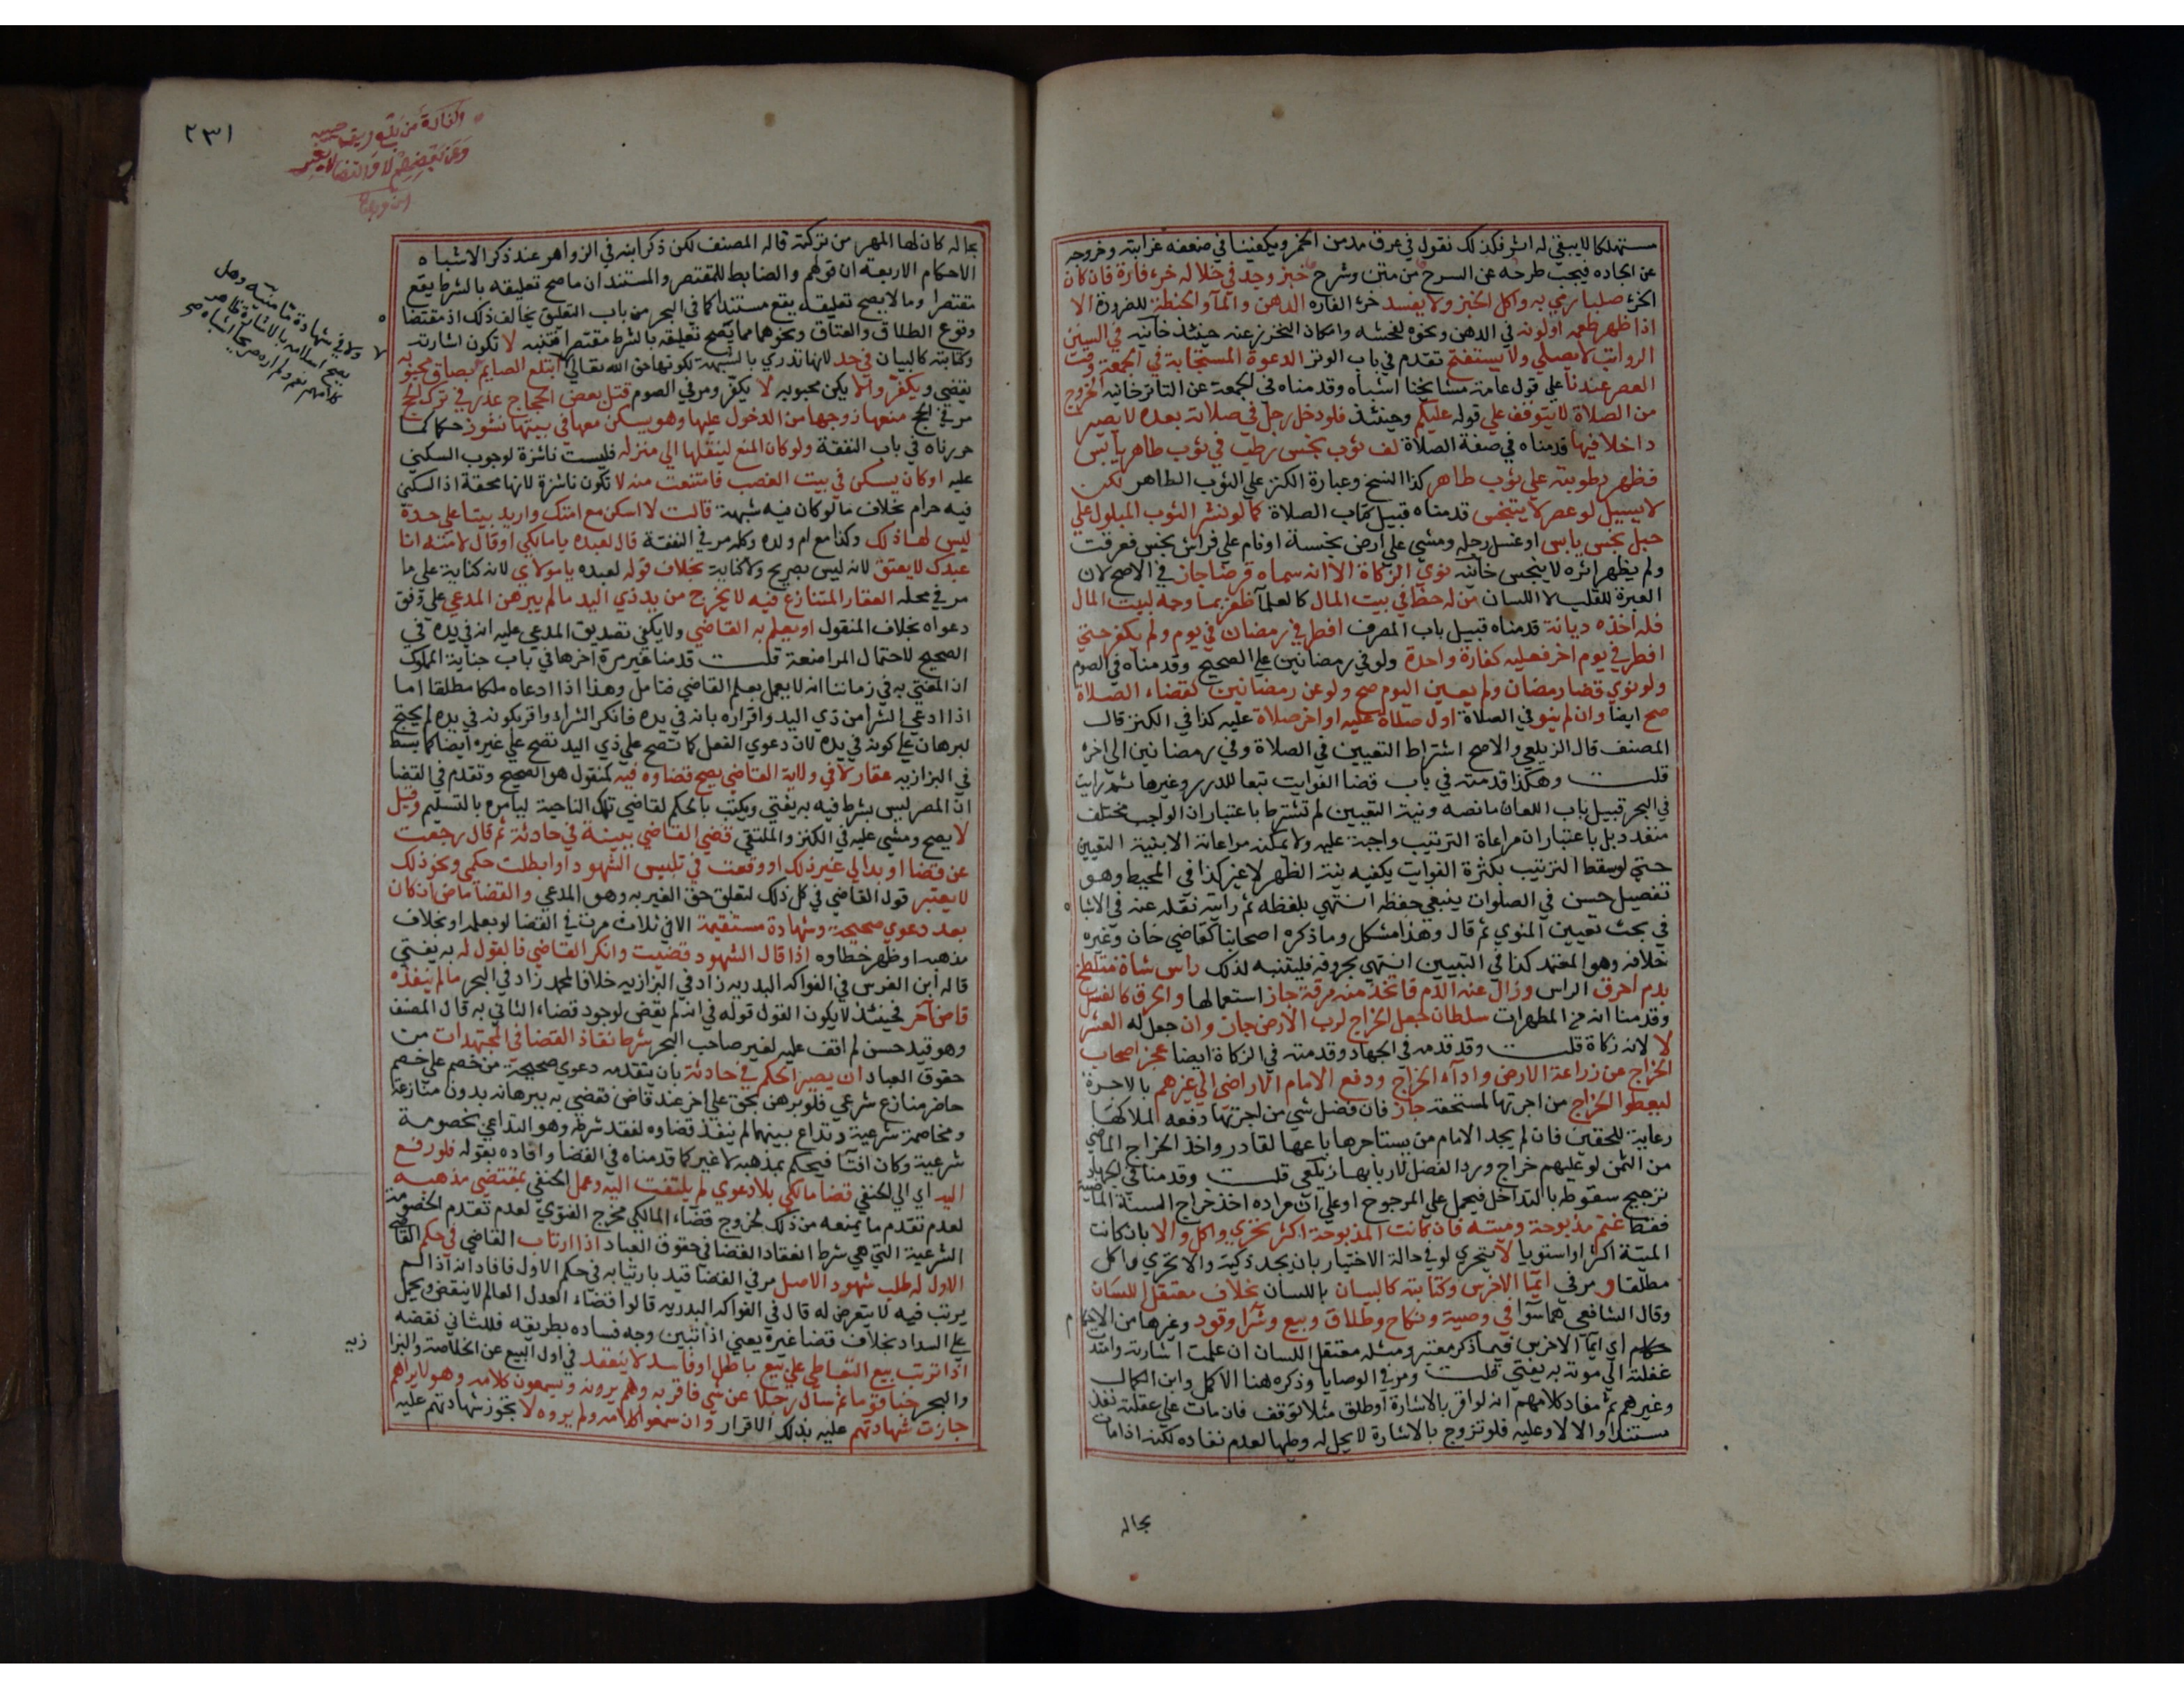 مستهلكا لا يبقي له اثر فكذلك نقول في عرق مدمن الخمر ويكفينا في ضعفه غرابته وخروجه
عن الجاده فيجب طرحه عن السرح من متن وشرح خبز وجد في خلاله خرء فارة فان كان
الخرء صلبا رمي به واكل الخبز ولا يفسد خرء الفاره الدهن والمآ والحنطة للضرورة الا
اذا ظهر طعمه او لونه في الدهن ونحوه لفحشه وامكان التحرز عنه حينئذ خانيه في السنن
الرواتب لا يصلي ولا يستفتح تقدم في باب الوتر الدعوة المستجابة في الجمعة وقت
العصر عندنا علي قول عامة مشايخنا اشباه وقدمناه في الجمعة عن التاترخانيه الخروج
من الصلاة لا يتوقف علي قوله عليكم وحينئذ فلو دخل رجل في صلاته بعده لا يصير
داخلا فيها قدمناه في صفة الصلاة لف ثوب نجس رطب في ثوب طاهر يابس
فظهر رطوبته علي ثوب طاهر كذا النسخ وعبارة الكنز علي الثوب الطاهر لكن
لا يسيل لو عصر لا يتنجس قدمناه قبيل كتاب الصلاة كما لو نشر الثوب المبلول علي
حبل نجس يابس او غسل رجله ومشي علي ارض نجسة او نام علي فراش نجس فعرقت
ولم يظهر اثره لا ينجس خانيه نوي الزكاة الا انه سماه قرضا جاز في الاصح لان
العبرة للقلب لا اللسان من له حظ في بيت المال كالعلمآ ظفر بما وجه لبيت المال
فله اخذه ديانة قدمناه قبيل باب المصرف افطر في رمضان في يوم ولم يكفر حتي
افطر في يوم اخر فعليه كفارة واحدة ولو في رمضانين علي الصحيح وقدمناه في الصوم
ولو نوي قضا رمضان ولم يعين اليوم صح ولو عن رمضانين كقضاء الصلاة
صح ايضا وان لم ينو في الصلاة اول صلاة عليه او اخر صلاة عليه كذا في الكنز قال
المصنف قال الزيلعي والاصح اشتراط التعيين في الصلاة وفي رمضانين الي اخره
قلت وهكذا قدمته في باب قضا الفوايت تبعا للدرر وغيرها ثم رايت
في البحر قبيل باب اللعان ما نصه ونية التعيين لم تشترط باعتبار ان الواجب مختلف
متعدد بل باعتبار ان مراعاة الترتيب واجبة عليه ولا يمكنه مراعاته الا بنية التعيين
حتي لو سقط الترتيب بكثرة الفوايت يكفيه نية الظهر لا غير كذا في المحيط وهو
تفصيل حسن في الصلوات ينبغي حفظه انتهي بلفظه ثم رايته نقله عنه في الاشباه
في بحث تعيين المنوي ثم قال وهذا مشكل وما ذكره اصحابنا كقاضي خان وغيره
خلافه وهو المعتمد كذا في التبيين انتهي بحروفه فليتنبه لذلك راس شاة متلطخ
بدم احرق الراس وزال عنه الدم فاتخذ منه مرقة جاز استعمالها والحرق كالغسل
وقدمنا انه من المطهرات سلطان جعل الخراج لرب الارض جاز وان جعل له العشر
لا لانه زكاة قلت وقد قدمه في الجهاد وقدمته في الزكاة ايضا عجز اصحاب
الخراج عن زراعة الارض واداء الخراج ودفع الامام الاراضي الي غيرهم بالاجرة
ليعطوا الخراج من اجرتها لمستحقه جاز فان فضل شي من اجرتها دفعه لملاكها
رعاية للحقين فان لم يجد الامام من يستاجرها باعها لقادر واخذ الخراج الماضي
من الثمن لو عليهم خراج ورد الفضل لاربابها زيلعي قلت وقدمنا في الجهاد
ترجيح سقوطه بالتداخل فيحمل علي المرجوح او علي ان مراده اخذ خراج السنة الماضية
فقط غنم مذبوحة وميتة فان كانت المذبوحة اكثر تحري واكل والا بان كانت
الميتة اكثر او استويا لا يتحري لو في حالة الاختيار بان يجد ذكية والا تحري واكل
مطلقا ومر في ايمآ الاخرس وكتابته كالبيان باللسان بخلاف معتقل اللسان
وقال الشافعي هما سوآ في وصية ونكاح وطلاق وبيع وشرا وقود وغيرها من الاحكام
اي ايمآ الاخرس فيما ذكر معتبر ومثله معتقل اللسان ان علمت اشارته وامتد
عقلته الي موته به يفتي قلت ومر في الوصايا وذكره هنا الاكمل وابن الكمال
وغيرهم ثم مفاد كلامهم انه لو اقر بالاشارة او طلق مثلا توقف فان مات علي عقلته نفذ
مستندا والا لا وعليه فلو تزوج بالاشارة لا يحل له وطيها لعدم نفاده لكنه اذا مات
بحاله
٢٣١
بحاله كان لها المهر من تركته قاله المصنف لكن ذكر ابنه في الزواهر عند ذكر الاشباه
الاحكام الاربعه ان قولهم والضابط للمقتصر والمستند ان ما صح تعليقه بالشرط يقع
مقتصرا وما لا يصح تعليقه يقع مستندا كما في البحر من باب التعليق يخالف ذلك اذ مقتضا
وقوع الطلاق والعتاق ونحوهما مما يصح تعليقه بالشرط مقتصرا فتنبه لا تكون اشارته
وكتابته كالبيان في حد لانها تدري بالشبهة لكونها حق الله تعالي ابتلع الصايم بصاق محبوبه
يقضي ويكفر والا يكن محبوبه لا يكفر ومر في الصوم قتل بعض الحجاج عذر في ترك الحج
مر في الحج منعها زوجها من الدخول عليها وهو يسكن معها في بيتها نشوز حكما كما
حررناه في باب النفقة ولو كان المنع لينقلها الي منزله فليست ناشزة لوجوب السكني
عليه او كان يسكن في بيت الغصب فامتنعت منه لا تكون ناشزة لانها محقة اذ السكني
فيه حرام بخلاف ما لو كان فيه شبهة قالت لا اسكن مع امتك واريد بيتا علي حدة
ليس لها ذلك وكذا مع ام ولده وكله مر في النفقة قال لعبده يا مالكي او قال لامته انا
عبدك لا يعتق لانه ليس بصريح ولا كناية بخلاف قوله لعبده يا مولاي لانه كناية علي ما
مر في محله العقار المتنازع فيه لا يخرج من يد ذي اليد ما لم يبرهن المدعي علي وفق
دعواه بخلاف المنقول او يعلم به القاضي ولا يكفي تصديق المدعي عليه انه في يده في
الصحيح لاحتمال المواضعة قلت قدمنا غير مرة اخرها في باب جناية المملوك
ان المفتي به في زماننا انه لا يعمل بعلم القاضي فتامل وهذا اذا ادعاه ملكا مطلقا اما
اذا ادعي الشرا من ذي اليد واقراره بانه في يده فانكر الشراء واقر بكونه في يده لم يحتج
لبرهان علي كونه في يده لان دعوي الفعل كما تصح علي ذي اليد تصح علي غيره ايضا كما بسط
في البزازيه عقار لا في ولاية القاضي يصح قضاوه فيه كمنقول هو الصحيح وتقدم في القضا
ان المصر ليس بشرط فيه به يفتي ويكتب بالحكم لقاضي تلك الناحية ليامره بالتسليم وقيل
لا يصح ومشي عليه في الكنز والملتقي قضي القاضي ببينة في حادثة ثم قال رجعت
عن قضا او بدا لي غير ذلك او وقعت في تلبيس الشهود او ابطلت حكمي ونحو ذلك
لا يعتبر قول القاضي في كل ذلك لتعلق حق الغير به وهو المدعي والقضا ماض ان كان
بعد دعوي صحيحة وشهادة مستقيمة الا في ثلاث مرت في القضا لو بعلمه او بخلاف
مذهبه او ظهر خطاوه اذا قال الشهود قضيت وانكر القاضي فالقول له به يفتي
قاله ابن الغرس في الفواكه البدريه زاد في البزازيه خلافا لمحمد زاد في البحر ما لم ينفذه
قاض آخر فحينئذ لا يكون القول قوله في انه لم يقض لوجود قضاء الثاني به قال المصنف
وهو قيد حسن لم اقف عليه لغير صاحب البحر شرط نفاذ القضا في المجتهدات من
حقوق العباد ان يصير الحكم في حادثة بان يتقدمه دعوي صحيحة من خصم علي خصم
حاضر منازع شرعي فلو برهن بحق علي اخر عند قاض فقضي به ببرهانه بدون منازعة
ومخاصمة شرعية وتداع بينهما لم ينفذ قضاوه لفقد شرطه وهو التداعي بخصومة
شرعية وكان افتآ فيحكم بمذهبه لا غير كما قدمناه في القضا وافاده بقوله فلو رفع
اليه اي الي الحنفي قضا مالكي بلا دعوي لم يلتفت اليه وعمل الحنفي بمقتضي مذهبه
لعدم تقدم ما يمنعه من ذلك لخروج قضاء المالكي مخرج الفتوي لعدم تقدم الخصومة
الشرعية التي هي شرط انعقاد القضا في حقوق العباد اذا ارتاب القاضي في حكم القاضي
الاول له طلب شهود الاصل مر في القضا قيد بارتيابه في حكم الاول فافاد انه اذا لم
يرتب فيه لا يتعرض له قال في الفواكه البدريه قالوا قضاء العدل العالم لا ينقض ويحمل
علي السداد بخلاف قضا غيره يعني اذا تبين وجه فساده بطريقه فللثاني نقضه
اذا ترتب بيع التعاطي علي بيع باطل او فاسد لا ينعقد في اول البيع عن الخلاصة والبزا
زيه
والبحر خبا قوما ثم سال رجلا عن شي فاقر به وهم يرونه ويسمعون كلامه وهو لا يراهم
جازت شهادتهم عليه بذلك الاقرار وان سمعوا كلامه ولم يروه لا تجوز شهادتهم عليه
ولا في شهادة ما منيه وهل
يصح اسلامه بالاشارة ظاهر
كلامهم نعم ولم اره صريحا اشباه صح